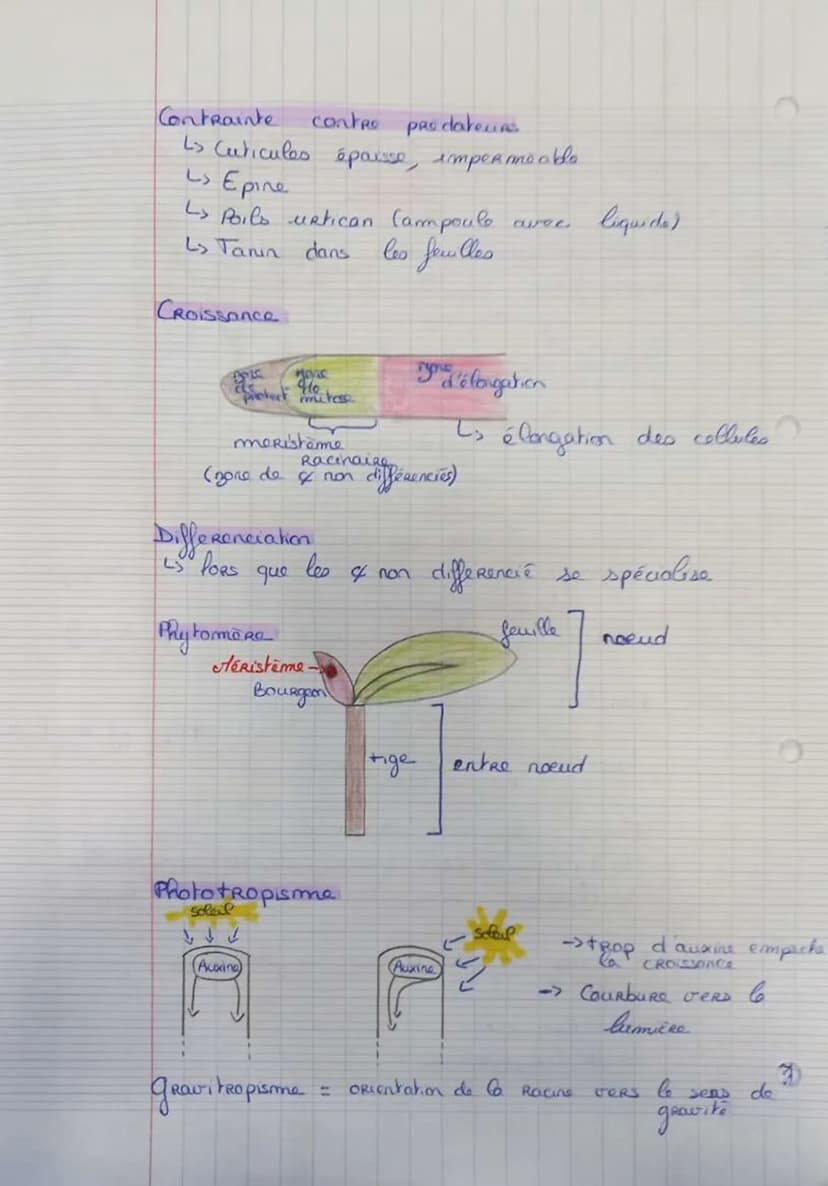 Contrainte contre prédateurs
↳ Cuticules épaisse, imperméable
↳ Epine
↳ Poils urtican (ampoule avec liquide)
↳ Tanin dans les feuilles
Croissance
zone de protect°
zone de mitose
zone d'élongation
↳ élongation des cellules
meristème
racinaire
(zone de ¢ non différenciés)
Différenciation
↳ lors que les ¢ non differencié se spécialise
Phytomère
feuille
noeud
Méristème
Bourgeon
tige
entre noeud
Phototropisme
soleil
Auxine
soleil
Auxine
→ trop d'auxine empeche
la croissance
→ Courbure vers la
lumière
gravitropisme = orientation de la racine vers le sens de
gravité